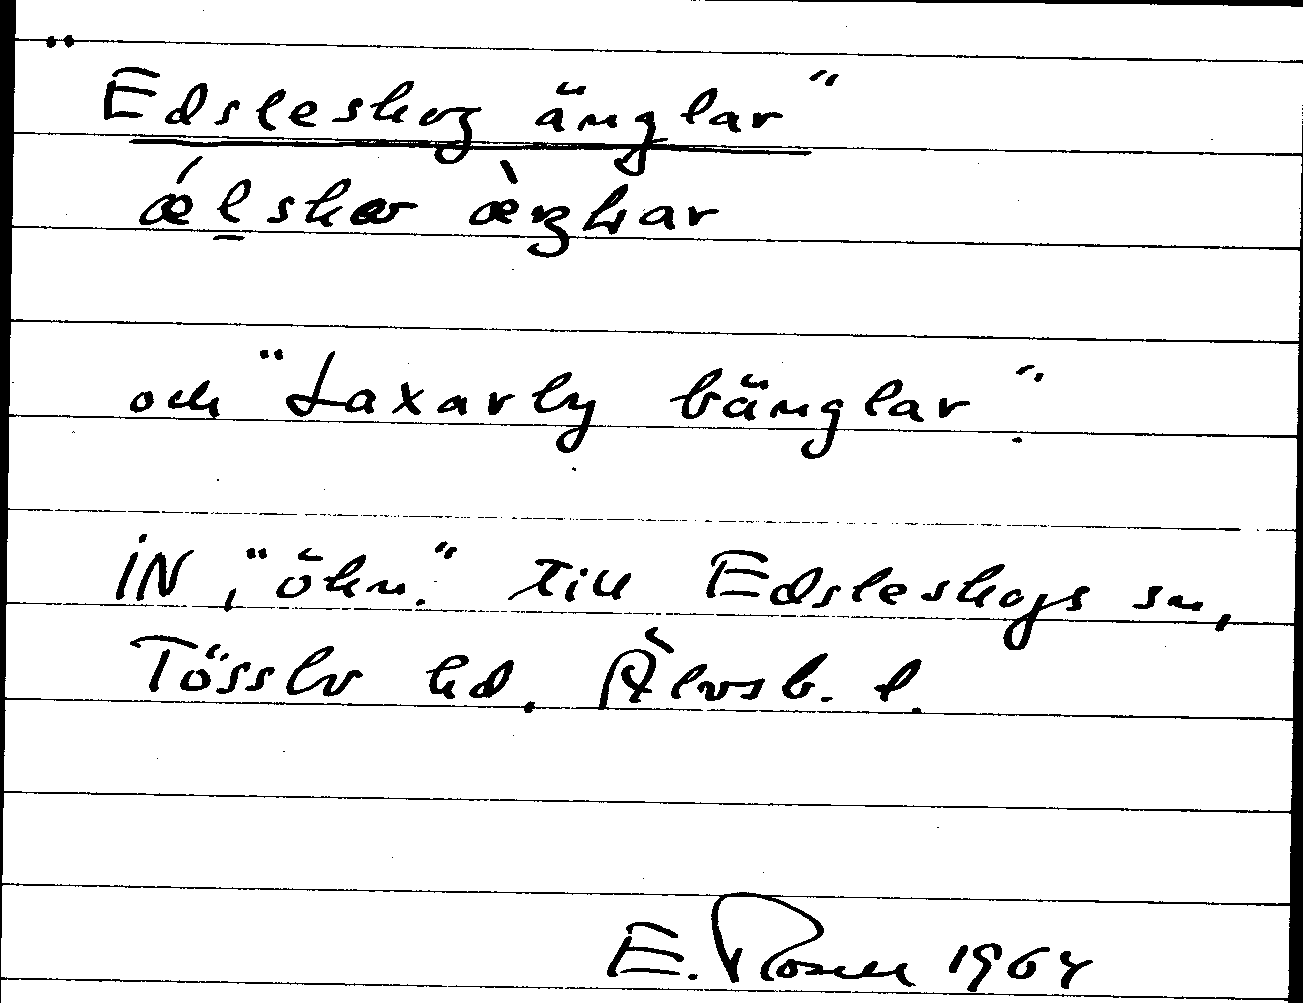 "Edsleskog änglar"
ǽl̠skɷ æ̀ŋlar
och "Laxarby bänglar".
IN, "ökn." till Edsleskogs sn,
Tössbo hd. Älvsb. l.
E. Rosell 1964